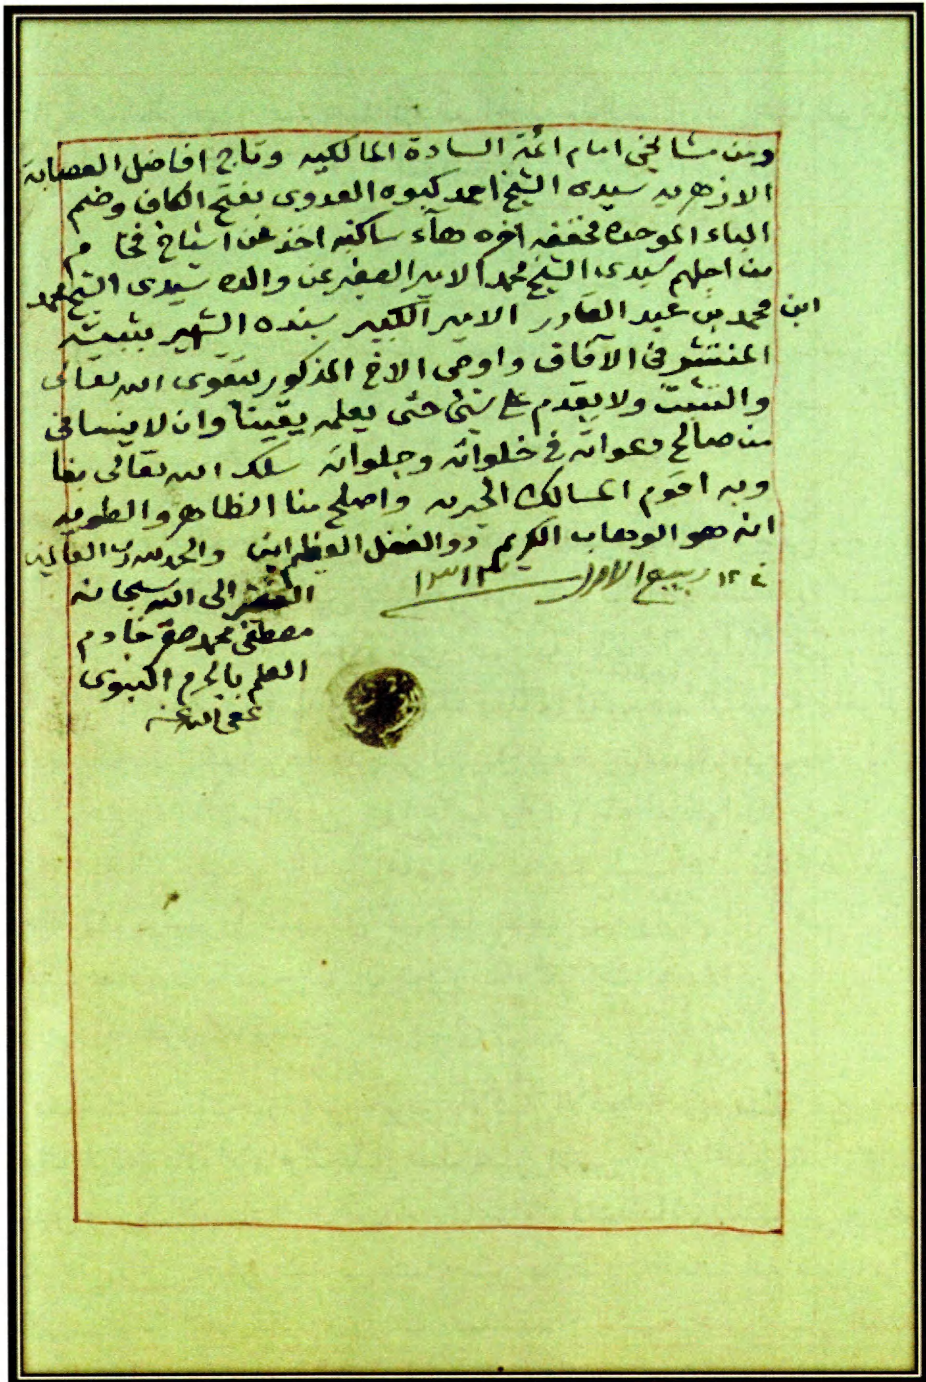 ومن مشائخي امام ائمة السادة المالكيه وتاج افاضل العصابة
الازهريه سيدى الشيخ احمد كبوه العدوى بفتح الكاف وضم
الباء الموحدة مخففه اخره هآء ساكنه اخذ عن اشياخ فخام
من اجلهم سيدى الشيخ محمد الامير الصغير عن والده سيدى الشيخ محمد
ابن محمد بن عبد القادر الامير الكبير بسنده الشهير بثبته
المنتشر فى الآفاق واوصى الاخ المذكور بتقوى الله تعالى
والتثبت ولا يقدم على شئ حتى يعلمه يقينا وان لا ينسانى
من صالح دعواته فى خلواته وجلواته سلك الله تعالى بنا
وبه اقوم المسالك الخيريه واصلح منا الظاهر والطويه
انه هو الوهاب الكريم ذو الفضل العظيم امين والحمد لله رب العالمين
١٢ ربيع الاول ١٣١٣
الفقير الى الله سبحانه
مصطفى محمد صقر خادم
العلم بالحرم النبوى
عفى الله عنه